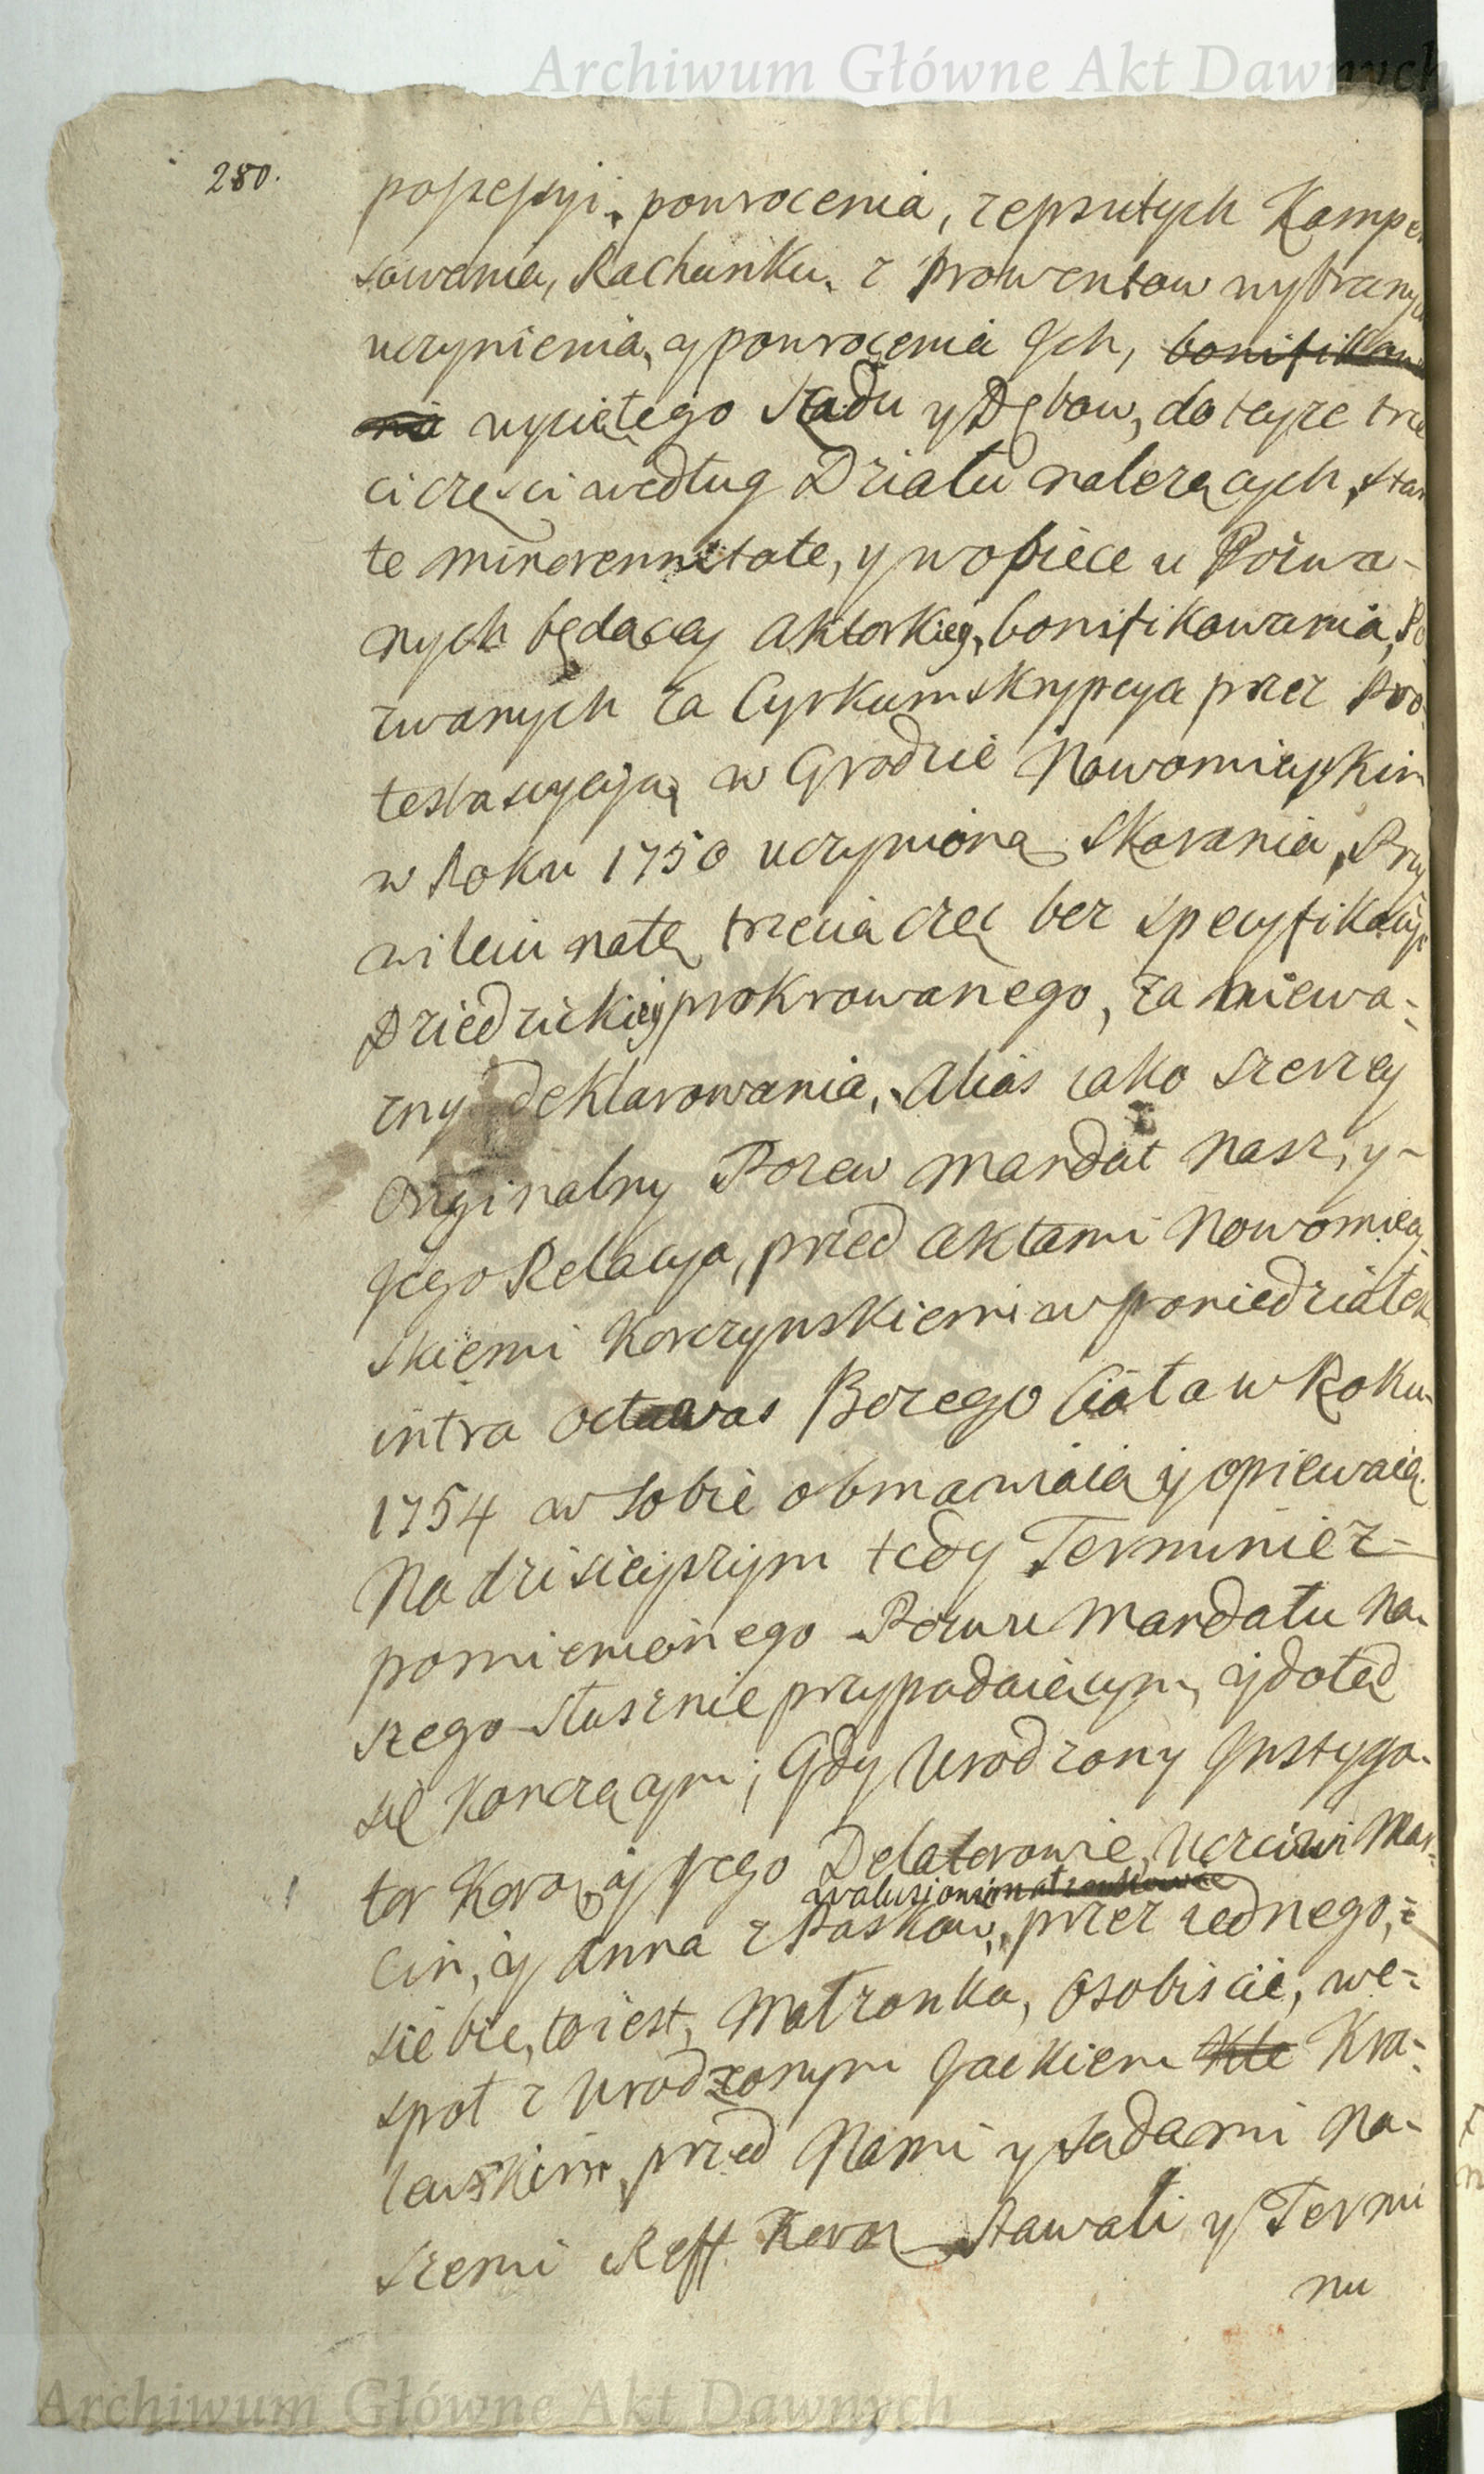 Archiwum Główne Akt Dawnych
280.
possessyi, powrocenia, zepsutych Kampen
sowania, Rachunku, z Prowentow wybranych
uczynienia, y powrocenia Jch, bonifikowa
nia wyciętego Sadu y Dębow, do teyze trze
ci częsci według Działu nalezących, stan
te minorennitate, y w opiece u Pozwa-
nych będącey Aktorkiey, bonifikowania, Po
zwanych za Cyrkumskrypcya przez Pro-
testacycyją w Grodzie Nowomieyskim
w Roku 1750 uczynioną Skarania, Przy
wileiu natę trzecia częć bez specyfikacyi
Dziedzickiey prokrowanego, za niewa-
zny deklarowania, Alias iako szerzey
Oryginalny Pozew Mandat nasz, y-
Jego Relacya, przed Aktami Nowomiey-
skiemi Korczynskiemi w Poniedziałek
intra Octavas Bozego Ciała w Roku
1754 w sobie obmawiaią y opiewaią.
Na dzisieyszym tedy Terminie z-
pomienionego Pozwu Mandatu Na-
szego słusznie przypadaiącym, y dotąd
się konczącym; Gdy Urodzony Jnstyga-
tor Koron y Jego Delatorowie, Uczciwi Mar-
walusionsi małzonkowie
cin, y Anna z Paskow, przez iednego, z
siebie, to iest, Małzonka, Osobiscie, we-
społ z Urodzonym Jackiem Kte Kra-
lewskim, przed Nami y Sądami Na-
szemi Reff. Koron Stawali y Termi
nu
Archiwum Główne Akt Dawnych